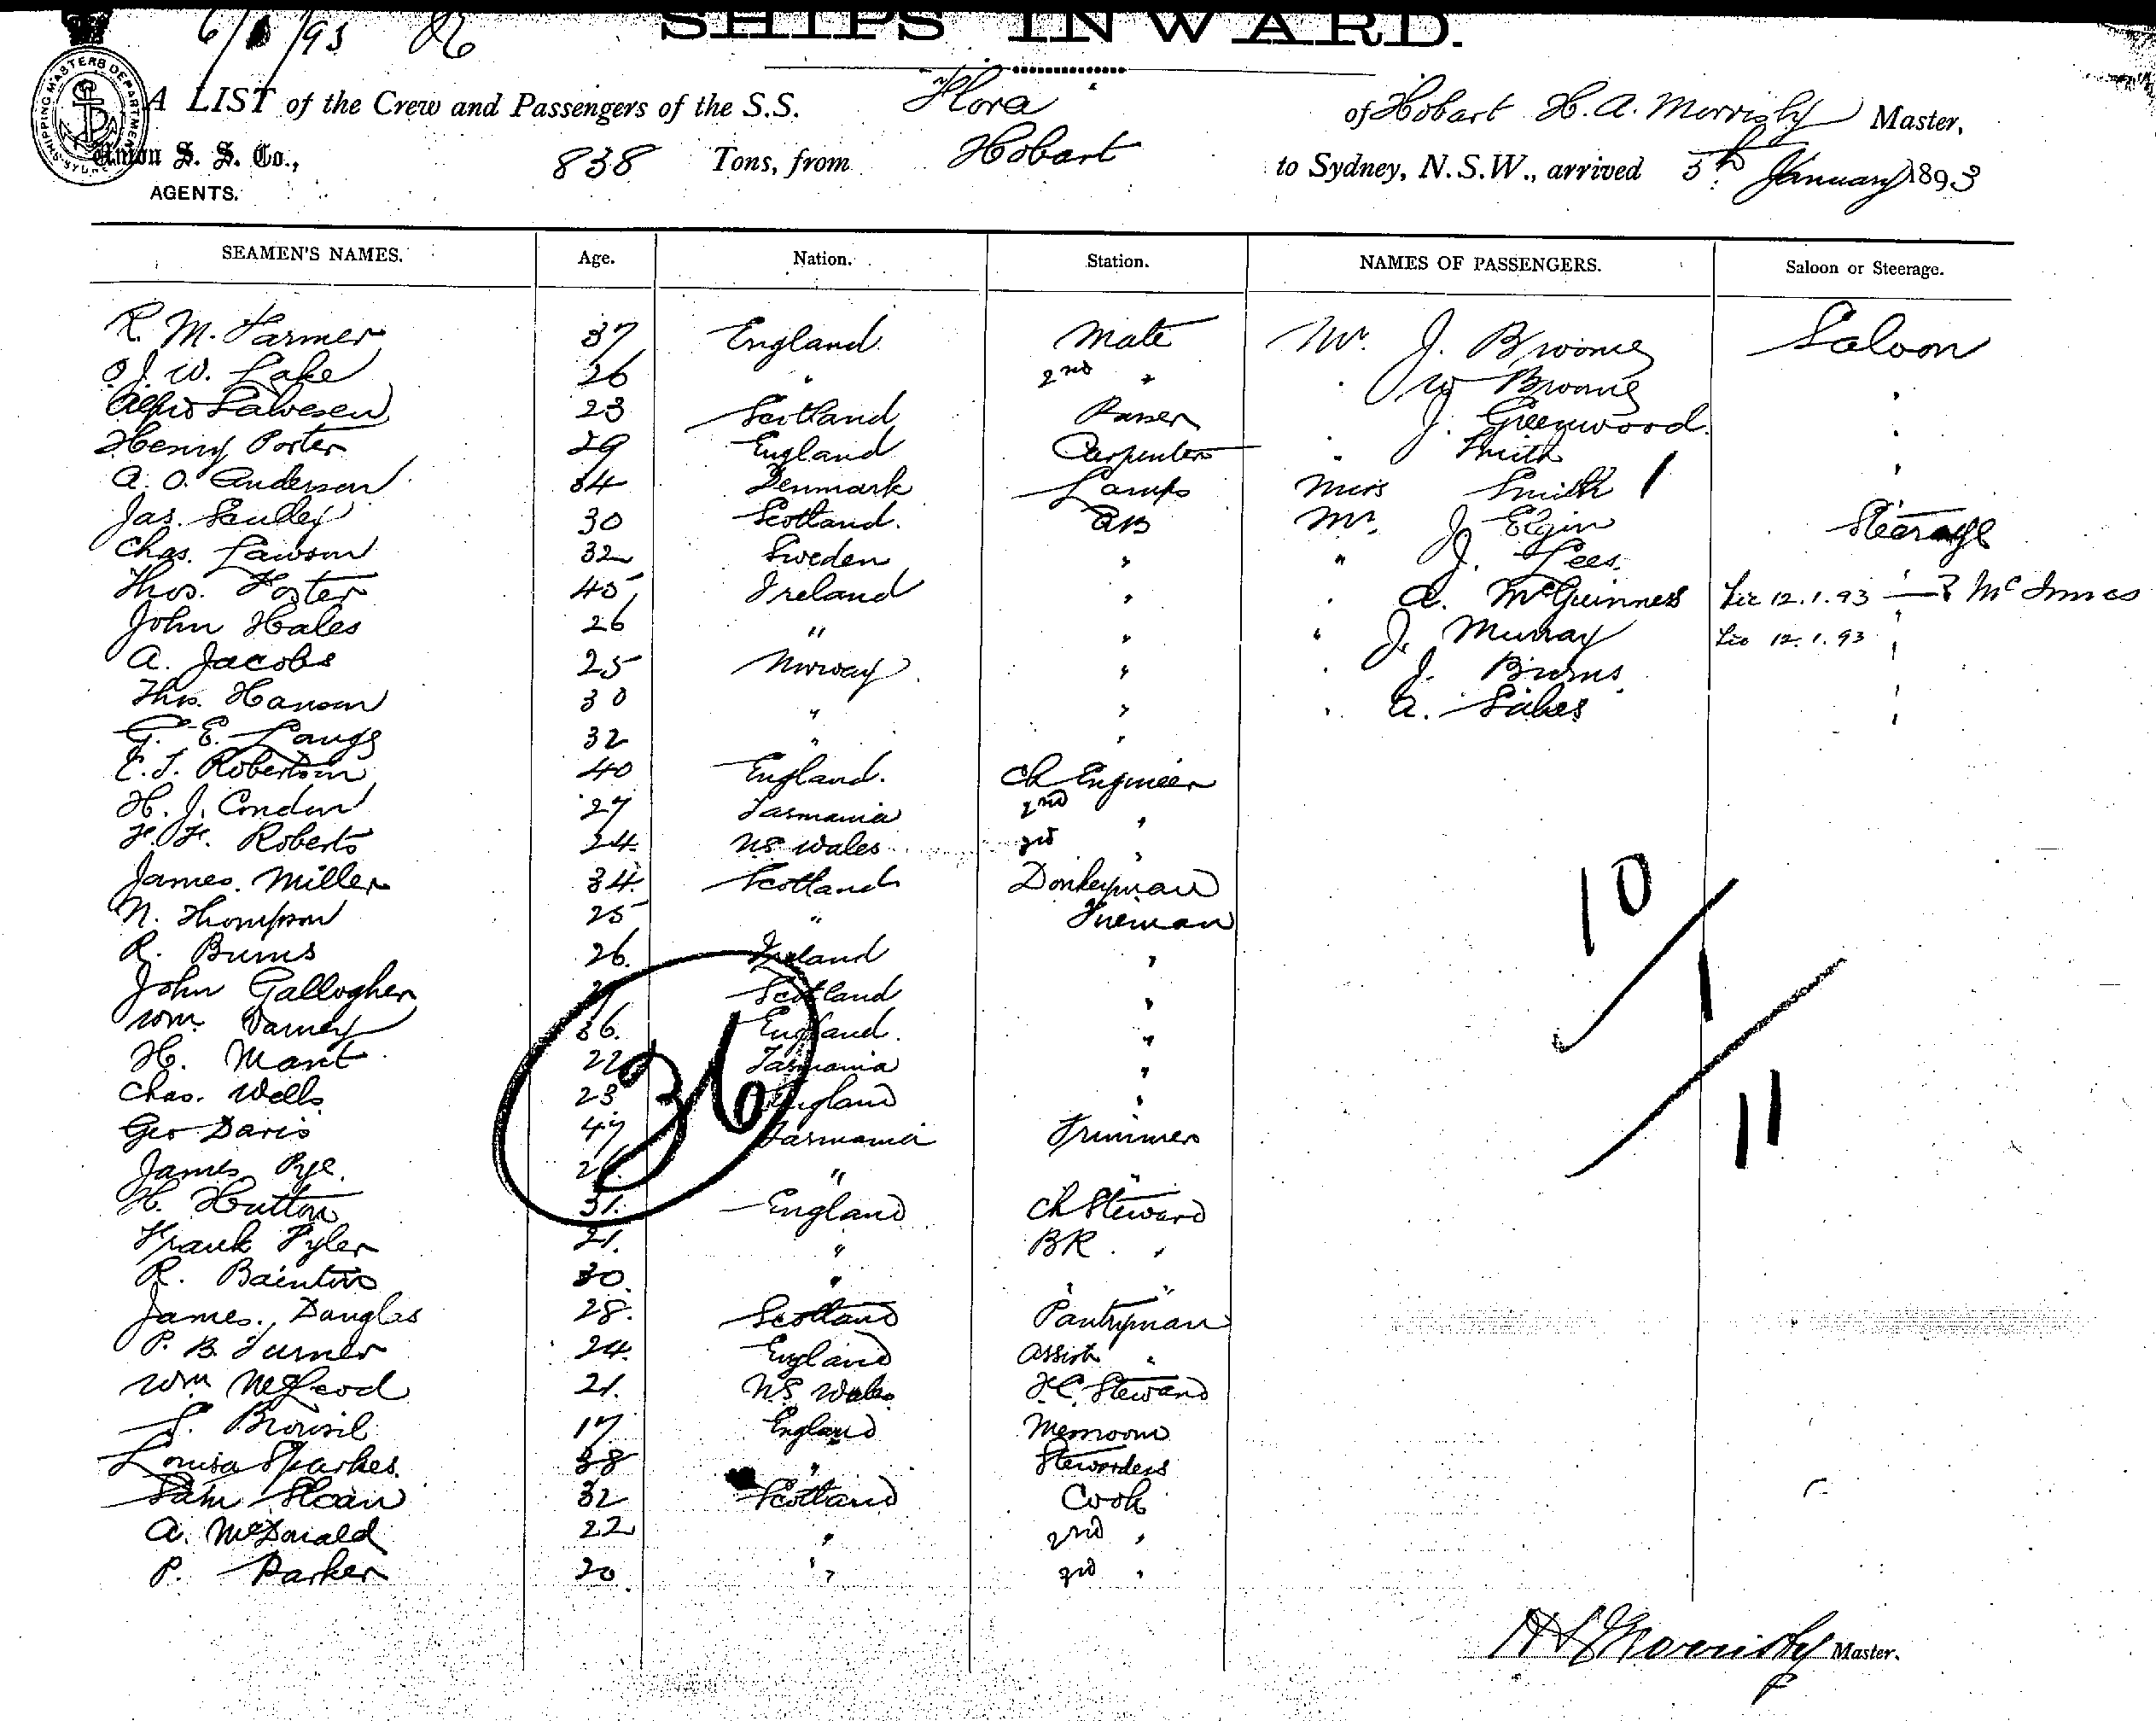 6/1/93
SHIPS INWARD.
SHIPPING MASTERS DEPARTMENT
A LIST of the Crew and Passengers of the S.S. Flora of Hobart H. A. Morrisby Master,
Union S. S. Co., 838 Tons, from Hobart to Sydney, N.S.W., arrived 5th January 1893
AGENTS.
SEAMEN'S NAMES. Age. Nation. Station. NAMES OF PASSENGERS. Saloon or Steerage.
R. M. Farmer 37 England Mate Mr. J. Broome Saloon
J. W. Lake 26 " 2nd " " W Broome "
Salvesen 23 Scotland J. Greenwood "
Henry Porter 29 England Carpenter " Smith "
A. O. Anderson 34 Denmark Lamps Miss Smith 1
Jas. Sculley 30 Scotland. AB Mr. J. Elgin Steerage
Chas. Lawson 32 Sweden " " J. Lees.
Thos. Foster 45 Ireland " " A. McGuinness 12.1.93 — ? McInnes
John Hales 26 " " " J. Murray 12.1.93 "
A. Jacobs 25 Norway " " J. Burns "
Thos. Hanson 30 " " " A. Sakes "
G. E. Lange 32 " " "
C. J. Robertson 40 England. Ch Engineer
H. J. Condon 27 Tasmania 2nd "
F. F. Roberts 24 N.S. Wales 3rd "
James Miller 34 Scotland Donkeyman 10
N. Thompson 25 " Fireman
R. Burns 26 Ireland "
John Gallogher Scotland " 1
Wm. Darney 36. England. "
H. Mant 22 Tasmania "
36
Chas. Wells 23 England " 11
Geo Davis 47 Tasmania Trimmer
James Pye. " "
H. Hutton 31. England Ch Steward
Frank Tyler 21. " BR. "
R. Bainton 30. " " "
James Douglas 28. Scotland Pantryman
P. B. Turner 24. England Assist "
Wm McLeod 21. N.S. Wales F.C. Steward
17 England Messroom
Louisa Sparkes. 38 " Stewardess
Sam Sloan 32 Scotland Cook
A. McDonald 22 " 2nd "
P. Parker 20 " 3rd "
Morrisby Master.